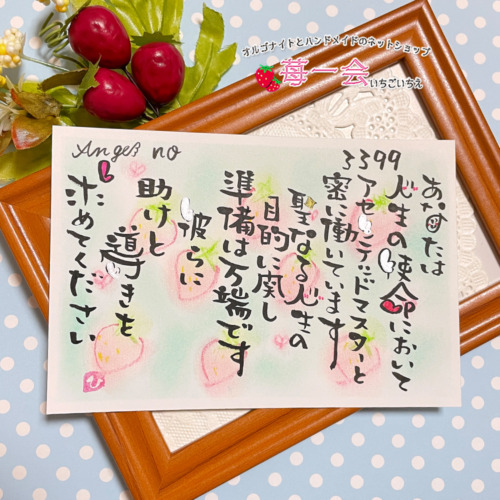 オルゴナイトとハンドメイドのネットショップ
苺一会いちごいちえ
Angel no
3399
あなたは
人生の使命において
アセンデッドマスターと
密に働いています
聖なる人生の
目的に関し
準備は万端です
彼らに
助けと
導きを
求めてください
ひ